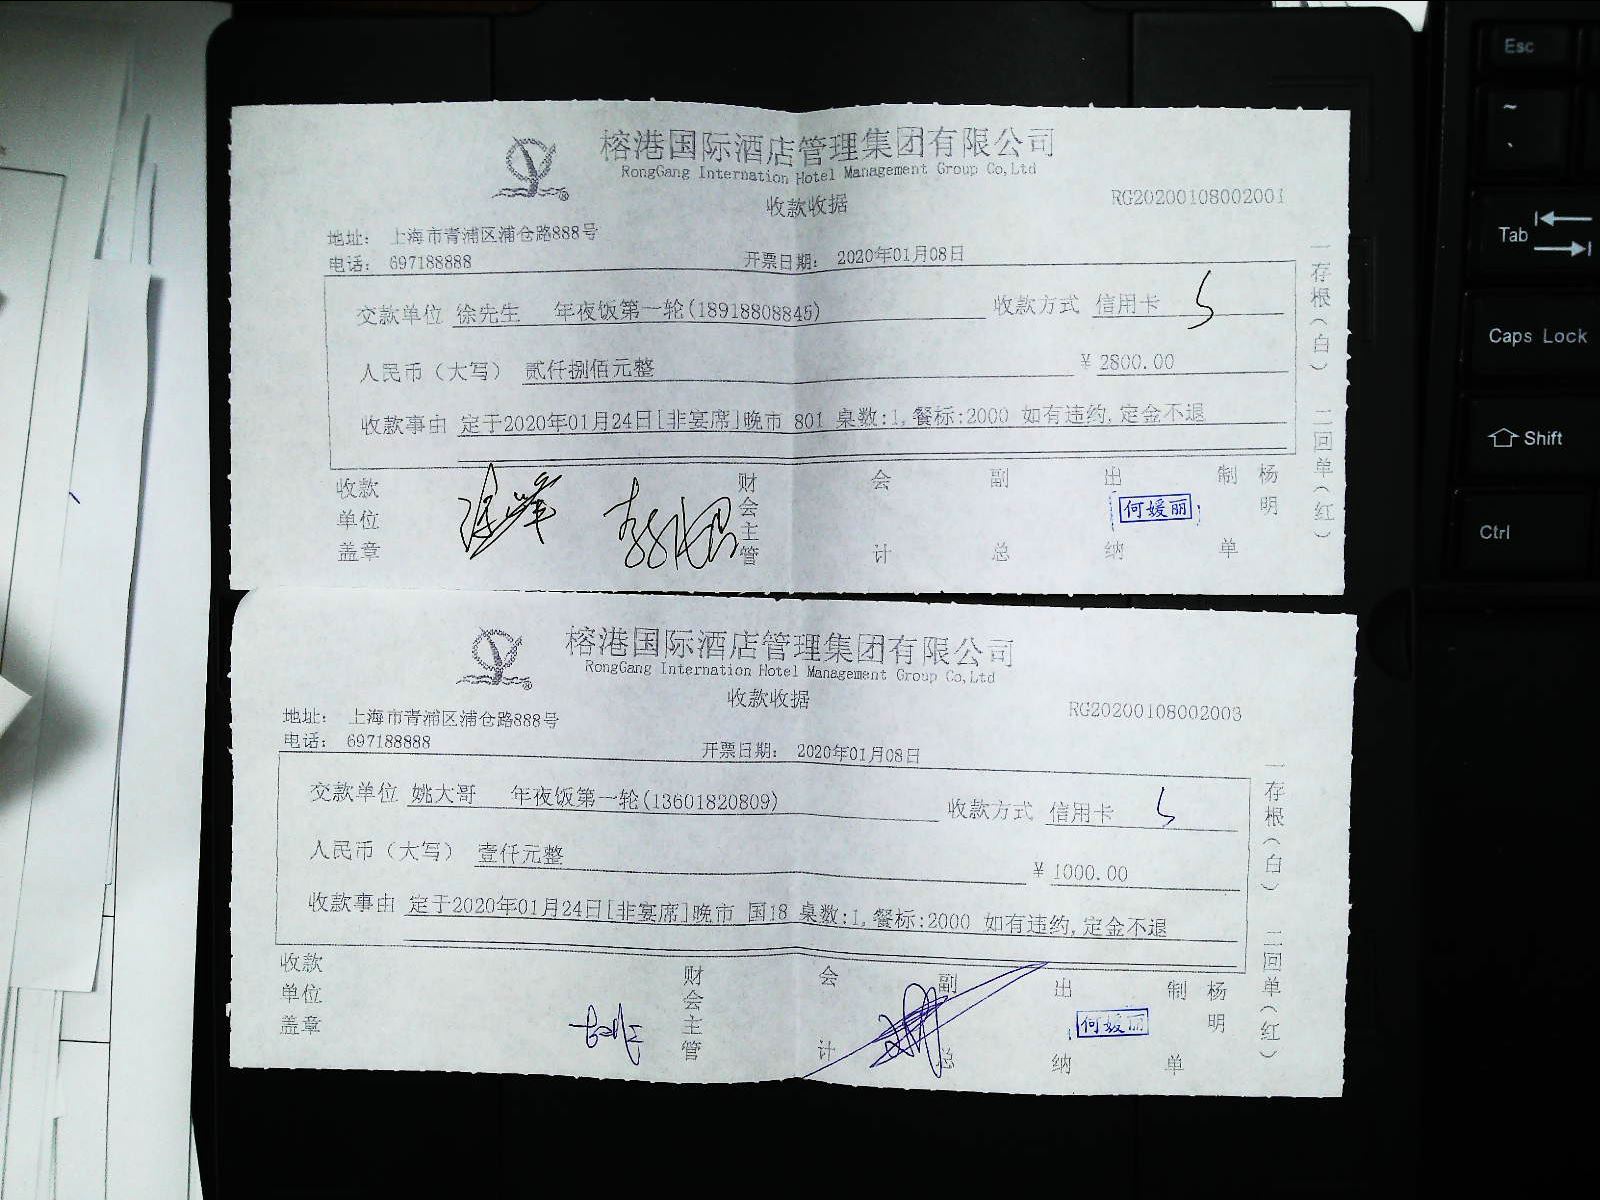 榕港国际酒店管理集团有限公司
RongGang Internation Hotel Management Group Co,Ltd
收款收据
RG20200108002001
地址： 上海市青浦区浦仓路888号
电话： 697188888
开票日期： 2020年01月08日
交款单位 徐先生 年夜饭第一轮(18918808845) 收款方式 信用卡
人民币（大写） 贰仟捌佰元整 ¥ 2800.00
收款事由 定于2020年01月24日[非宴席]晚市 801 桌数:1,餐标:2000 如有违约,定金不退
收款单位盖章 财会主管 会计 副总 出纳 何媛丽 制单 杨明
一存根（白） 二回单（红）
榕港国际酒店管理集团有限公司
RongGang Internation Hotel Management Group Co,Ltd
收款收据
RG20200108002003
地址： 上海市青浦区浦仓路888号
电话： 697188888
开票日期： 2020年01月08日
交款单位 姚大哥 年夜饭第一轮(13601820809) 收款方式 信用卡
人民币（大写） 壹仟元整 ¥ 1000.00
收款事由 定于2020年01月24日[非宴席]晚市 国18 桌数:1,餐标:2000 如有违约,定金不退
收款单位盖章 财会主管 会计 副总 出纳 何媛丽 制单 杨明
一存根（白） 二回单（红）
Esc
~
Tab
Caps Lock
Shift
Ctrl